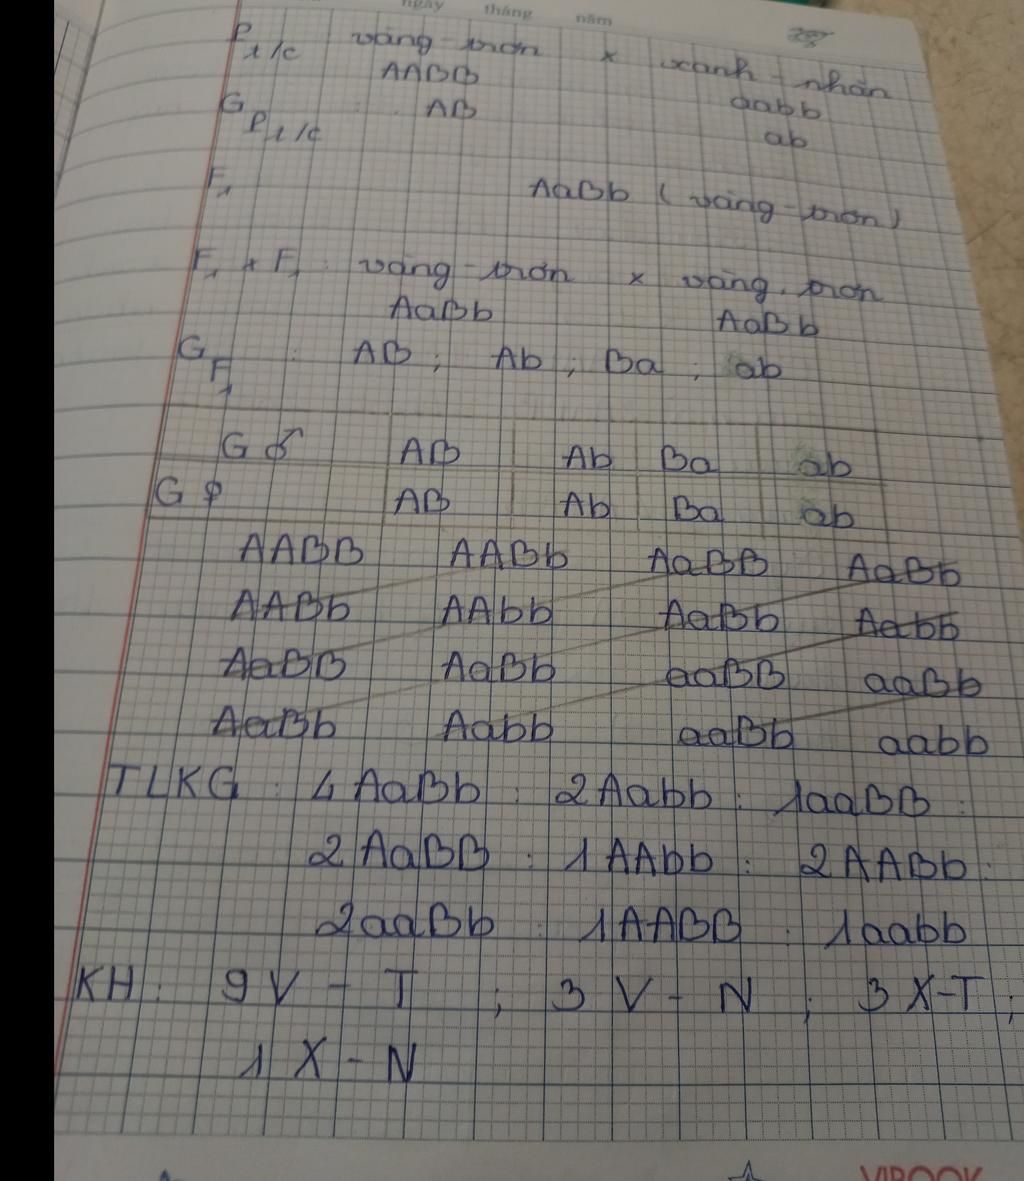 ngày tháng năm
P t/c vàng - trơn x xanh - nhăn
AABB aabb
G P t/c : AB ab
F1 AaBb (vàng - trơn)
F1 x F1 : vàng - trơn x vàng - trơn
AaBb AaBb
G F1 : AB ; Ab ; Ba ; ab
G ♂ AB Ab Ba ab
G ♀ AB Ab Ba ab
AABB AABb AaBB AaBb
AABb AAbb AaBb Aabb
AaBB AaBb aaBB aaBb
AaBb Aabb aaBb aabb
TLKG : 4 AaBb : 2 Aabb : 1 aaBB :
2 AaBB : 1 AAbb : 2 AABb :
2 aaBb : 1 AABB : 1 aabb
KH : 9 V - T ; 3 V - N ; 3 X - T ;
1 X - N